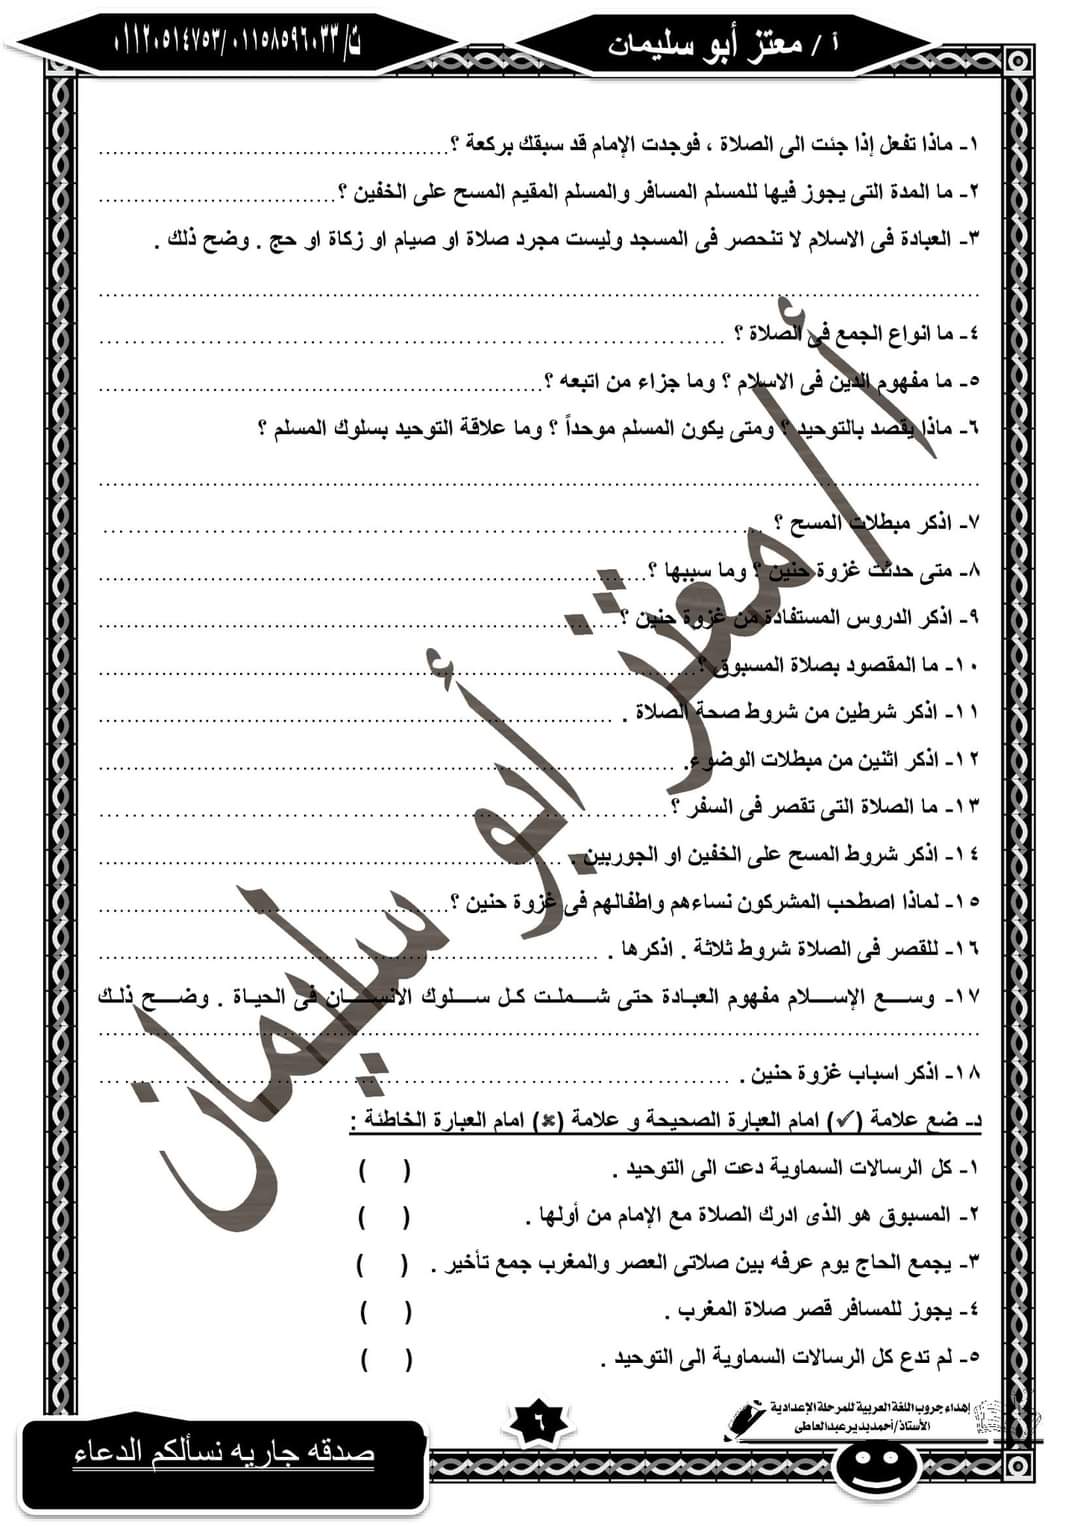 أ / معتز أبو سليمان
ت/ ٠١١٥٨٥٩٦٠٣٣ /٠١١٢٠٥١٤٧٥٣
١- ماذا تفعل إذا جئت الى الصلاة ، فوجدت الإمام قد سبقك بركعة ؟
٢- ما المدة التى يجوز فيها للمسلم المسافر والمسلم المقيم المسح على الخفين ؟
٣- العبادة فى الاسلام لا تنحصر فى المسجد وليست مجرد صلاة او صيام او زكاة او حج . وضح ذلك .
٤- ما انواع الجمع فى الصلاة ؟
٥- ما مفهوم الدين فى الاسلام ؟ وما جزاء من اتبعه ؟
٦- ماذا يقصد بالتوحيد ؟ ومتى يكون المسلم موحداً ؟ وما علاقة التوحيد بسلوك المسلم ؟
٧- اذكر مبطلات المسح ؟
٨- متى حدثت غزوة حنين ؟ وما سببها ؟
٩- اذكر الدروس المستفادة من غزوة حنين ؟
١٠- ما المقصود بصلاة المسبوق ؟
١١- اذكر شرطين من شروط صحة الصلاة .
١٢- اذكر اثنين من مبطلات الوضوء.
١٣- ما الصلاة التى تقصر فى السفر ؟
١٤- اذكر شروط المسح على الخفين او الجوربين .
١٥- لماذا اصطحب المشركون نساءهم واطفالهم فى غزوة حنين ؟
١٦- للقصر فى الصلاة شروط ثلاثة . اذكرها .
١٧- وسع الإسلام مفهوم العبادة حتى شملت كل سلوك الانسان فى الحياة . وضح ذلك
١٨- اذكر اسباب غزوة حنين .
د- ضع علامة (✓) امام العبارة الصحيحة و علامة (×) امام العبارة الخاطئة :
١- كل الرسالات السماوية دعت الى التوحيد . ( )
٢- المسبوق هو الذى ادرك الصلاة مع الإمام من أولها . ( )
٣- يجمع الحاج يوم عرفه بين صلاتى العصر والمغرب جمع تأخير . ( )
٤- يجوز للمسافر قصر صلاة المغرب . ( )
٥- لم تدع كل الرسالات السماوية الى التوحيد . ( )
أ / معتز أبو سليمان
إهداء جروب اللغة العربية للمرحلة الإعدادية
الأستاذ/أحمد بدير عبدالعاطى
٦
صدقه جاريه نسألكم الدعاء